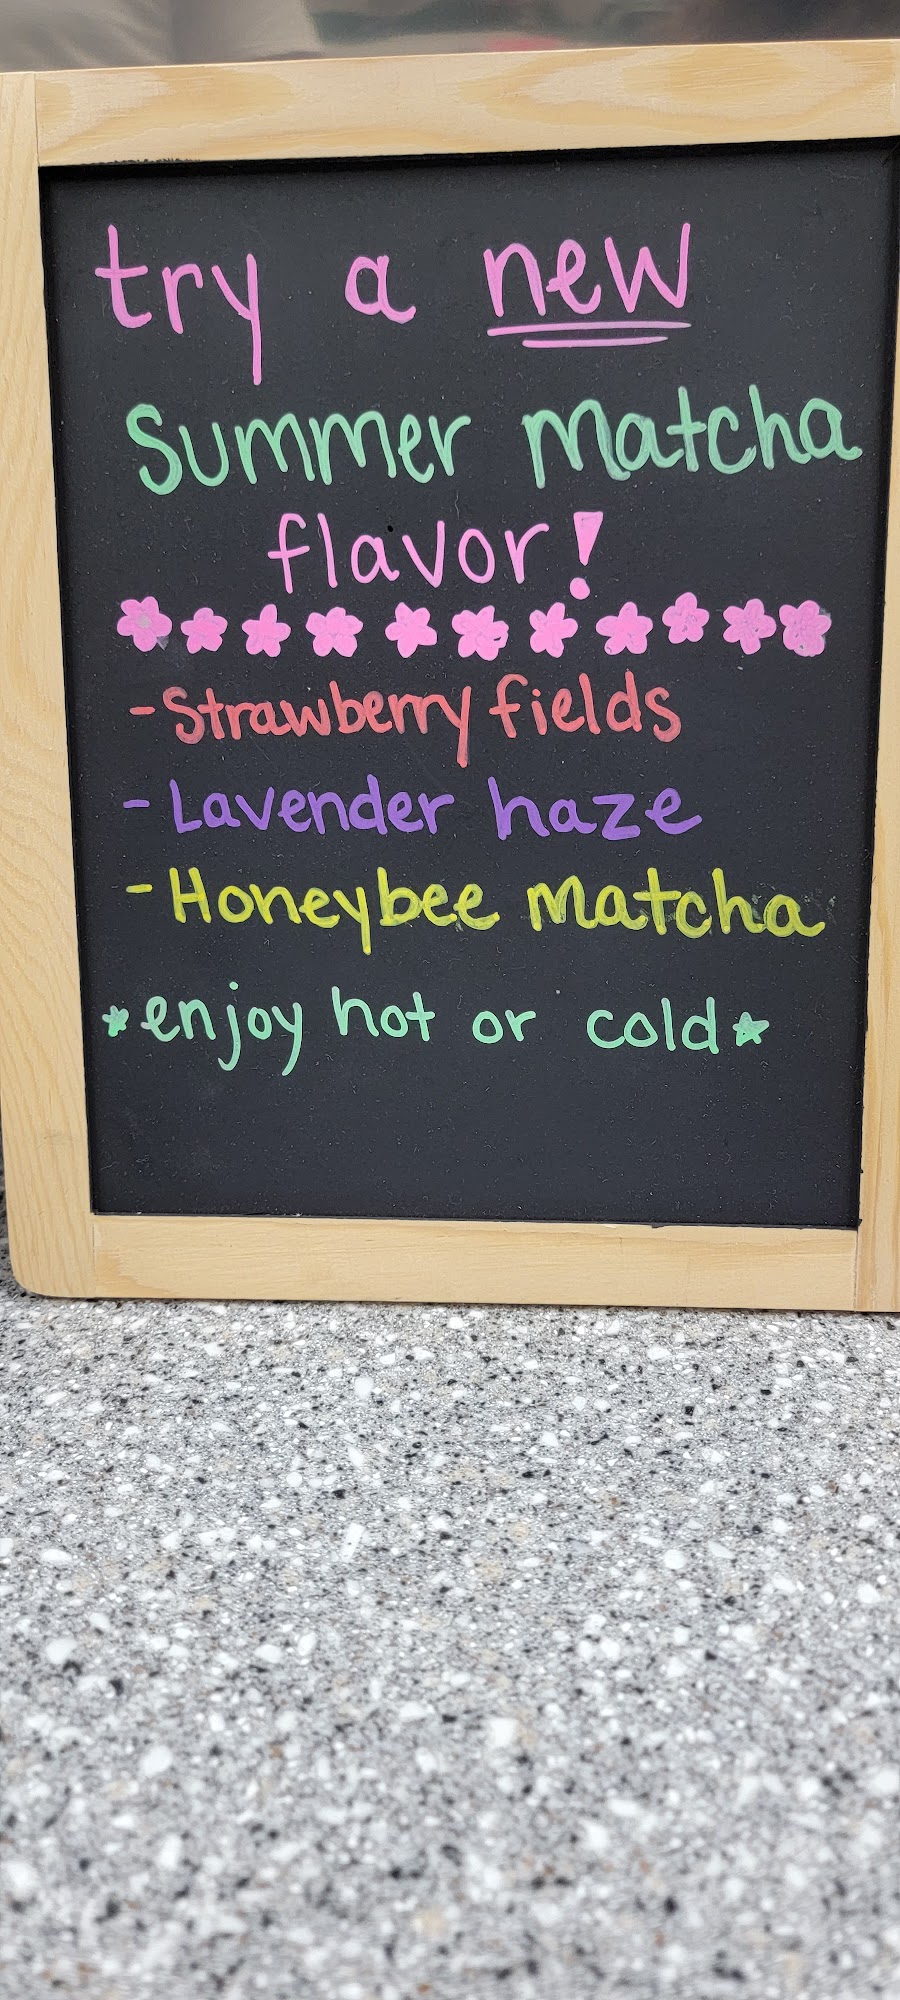 try a new
Summer Matcha
flavor!
-Strawberry fields
-Lavender haze
-Honeybee Matcha
*enjoy hot or cold*